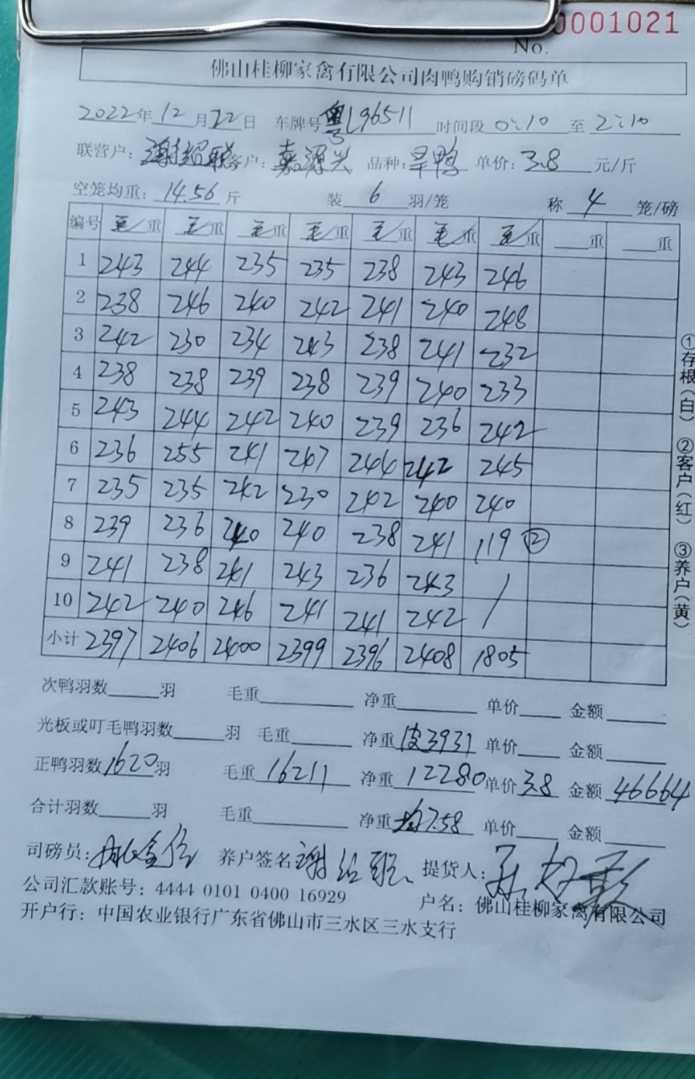 No. 0001021
佛山桂柳家禽有限公司肉鸭购销磅码单
2022年12月22日 车牌号粤L96511 时间段0:10至2:10
联营户:谢绍联 客户:嘉源兴 品种:旱鸭 单价:3.8元/斤
空笼均重:14.56斤 装6羽/笼 称4笼/磅
编号 毛重 毛重 毛重 毛重 毛重 毛重 毛重 重 重
1 243 244 235 235 238 243 246
2 238 246 240 242 241 240 248
3 242 230 234 243 238 241 232
4 238 238 239 238 239 240 233
5 243 244 242 240 239 236 242
6 236 255 241 247 244 242 245
7 235 235 242 230 242 240 240
8 239 236 240 240 238 241 119 ②
9 241 238 241 243 236 243 /
10 242 240 246 241 241 242 /
小计 2397 2406 2400 2399 2396 2408 1805
次鸭羽数 羽 毛重 净重 单价 金额
光板或叮毛鸭羽数 羽 毛重 净重皮3931 单价 金额
正鸭羽数1620羽 毛重16211 净重12280 单价3.8 金额46664
合计羽数 羽 毛重 净重均7.58 单价 金额
司磅员: 养户签名 提货人:
公司汇款账号:4444 0101 0400 16929 户名:佛山桂柳家禽有限公司
开户行:中国农业银行广东省佛山市三水区三水支行
①存根(白) ②客户(红) ③养户(黄)